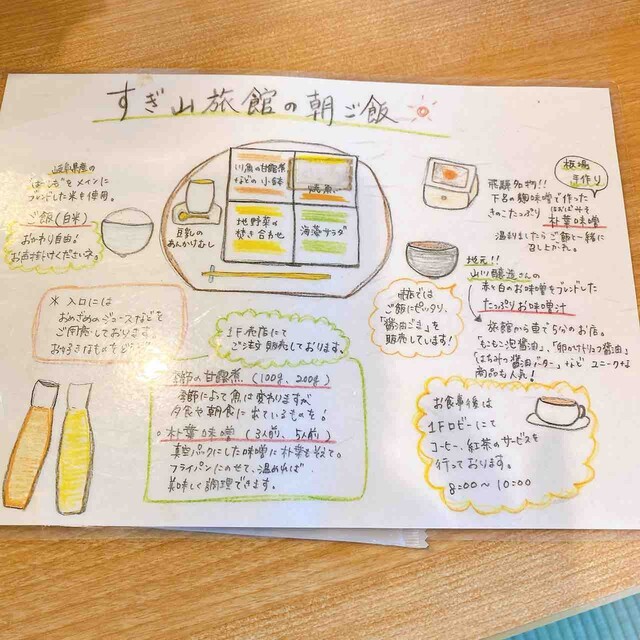 すぎ山旅館の朝ご飯
岐阜県産の
"はしも"をメインに
ブレンドした米を使用。
ご飯(白米)
おかわり自由!
お声がけくださいませ。
川魚の甘露煮
などの小鉢
焼魚
地野菜の
炊き合わせ
海藻サラダ
豆乳の
あんかけむし
板場
手作り
飛騨名物!!
下呂の麹味噌で作った
きのこたっぷり
朴葉味噌
温まりましたらご飯と一緒に
召し上がれ。
地元!!
山川醸造さんの
赤と白のお味噌をブレンドした
たっぷりお味噌汁
旅館から車で5分のお店。
「もこもこ泡醤油」、「卵かけトリュフ醤油」
「はちみつ醤油バター」など ユニークな
商品も人気!
ご飯にピッタリ、
「醤油ごま」を
販売しています!
※ 入口には
おめざめのジュースなどを
ご用意しております
お好きなものをどうぞ
1F売店にて
ご注文 販売しております。
季節の甘露煮 (100g、200g)
季節によって魚は変わりますが
夕食や朝食に出ているものを!
朴葉味噌 (3人前、5人前)
真空パックにした味噌に朴葉も添えて。
フライパンにのせて、温めれば、
美味しく調理できます。
お食事後は
1Fロビーにて
コーヒー、紅茶のサービスを
行っております。
8:00〜10:00